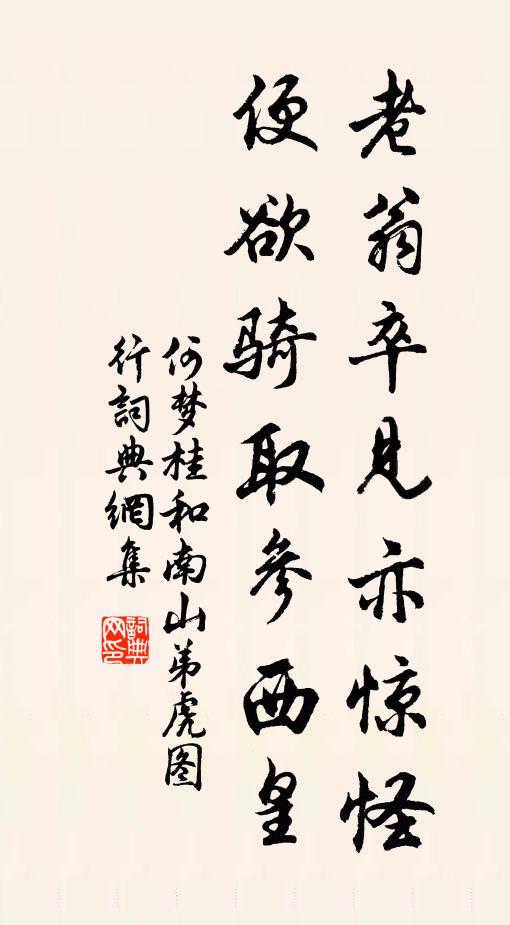 老翁卒见亦惊怪
便欲骑取参西皇
何梦桂和南山弟虎图
行詞典網集
詞典
网印